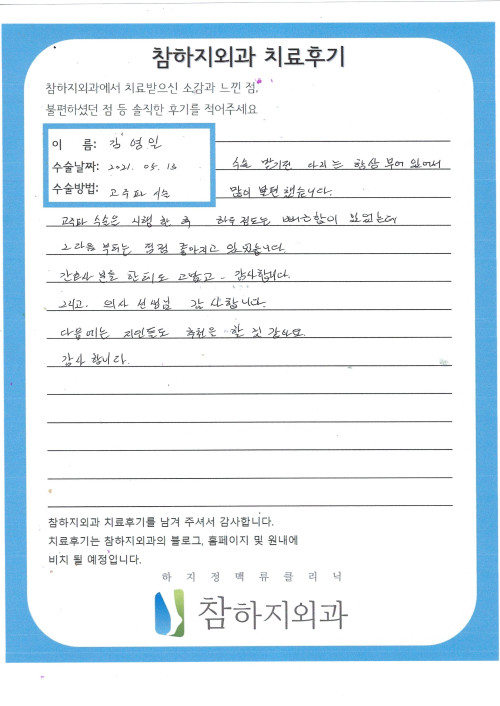 참하지외과 치료후기
참하지외과에서 치료받으신 소감과 느낀 점,
불편하셨던 점 등 솔직한 후기를 적어주세요
이 름: 김영일
수술날짜: 2021. 05. 13
수술방법: 고주파 시술
수술 받기전 다리는 항상 부어 있어서
많이 불편했습니다.
고주파 수술은 시행 한 후 하루정도는 뻐근함이 있었는데
그 다음 부터는 점점 좋아지고 있었습니다.
간호사 분들 한테도 고맙고 - 감사합니다.
그리고. 의사 선생님 감사합니다.
다음에는 지인들도 추천은 할 것 같아요.
감사 합니다.
참하지외과 치료후기를 남겨 주셔서 감사합니다.
치료후기는 참하지외과의 블로그, 홈페이지 및 원내에
비치 될 예정입니다.
하지정맥류클리닉
참하지외과